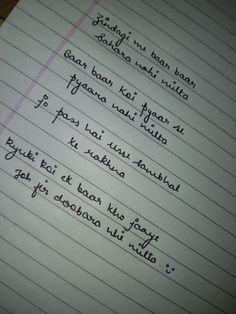 Zindagi me baar baar
Sahara nahi milta
Baar baar koi pyaar se
pyaara nahi milta
Jo pass hai usse sambhal
ke rakhna
Kyuki koi ek baar kho jaaye
toh fir doobara nhi milta.